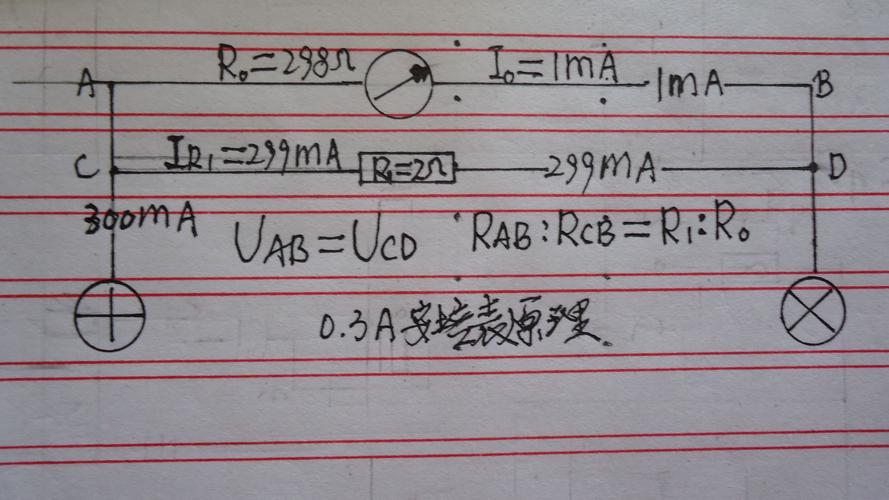 A R₀=298Ω I₀=1mA 1mA B
C IR₁=299mA R₁=2Ω 299mA D
300mA
UAB=UCD RAB:RCB=R₁:R₀
0.3A安培表原理.